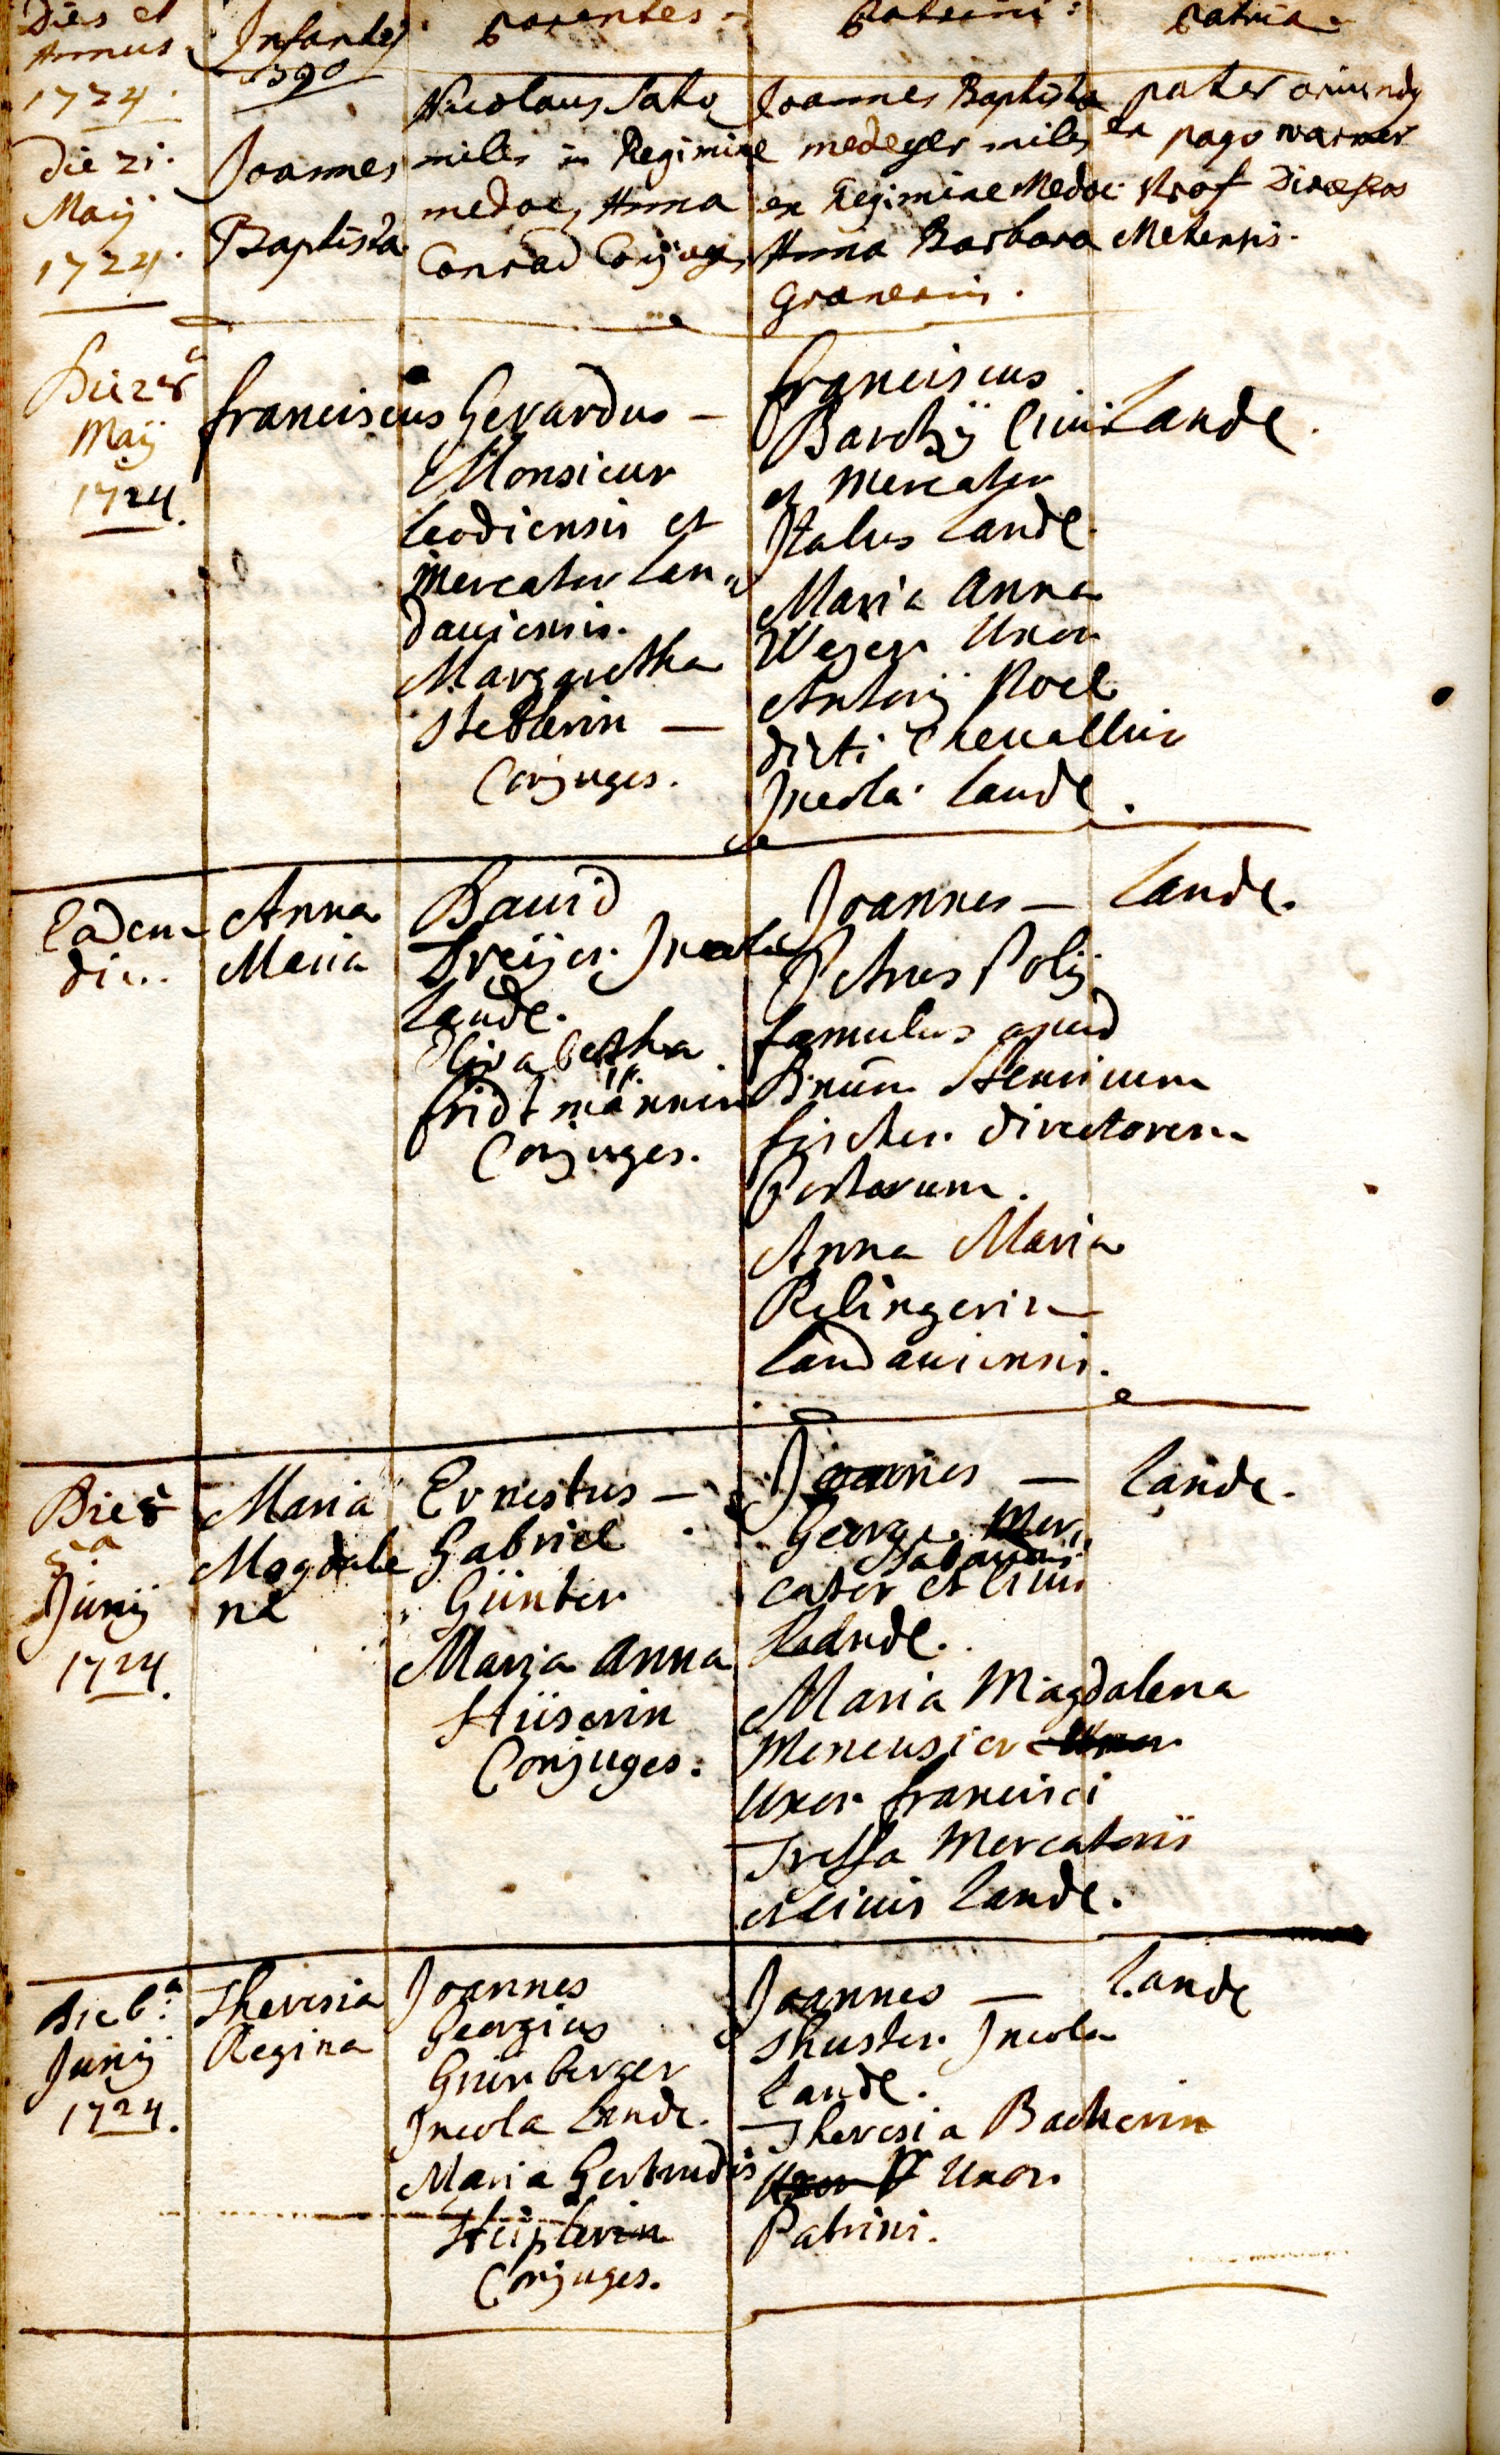 Dies et
Annus
Infantes
390
parentes
patrini:
patria
1724.
die 21.
Maij
1724.
Joannes
Baptista
Nicolaus Sato
miles in Regimine
medoc, Anna
Conrad Conjuges
Joannes Baptista
medeger miles
ex Regimine Medoc
Anna Barbara
Granerin.
pater oriundus
ex pago
Metensis.
Die 28a
Maij
1724.
franciscus
Gerardus –
Monsieur
leodiensis et
Mercator Lan=
dauiensis.
Margaretha
Steblerin –
Conjuges.
franciscus
Civis
et Mercator
Italus Landæ.
Maria Anna
Weger Uxor
Antonij Noel
dicti Chevallier
Incolæ Landæ.
Landæ.
Eadem
die.
Anna
Maria
David
Dreijer Incola
Landæ.
Elisabetha
fridtmännin
Conjuges.
Joannes –
Petrus Polij
famulus apud
Dnum Henricum
fischer directorem
Postarum.
Anna Maria
Relingerin
Landauiensis.
Landæ.
Die
5.a
Junij
1724.
Maria
Magdale
na
Ernestus –
Gabriel
Günter
Maria Anna
Hüserin
Conjuges.
Joannes –
George Mer,
Sabaudus
cator et Civis
Landæ.
Maria Magdalena
Meneusier
Uxor francisci
Tressa Mercatoris
et Civis Landæ.
Landæ.
Die 6.a
Junij
1724.
Theresia
Regina
Joannes
Georgius
Grünberger
Incola Landæ.
Maria Gertrudis
Conjuges.
Joannes –
Shuster Incola
Landæ.
Theresia Bacherin
Uxor
Patrini.
Landæ